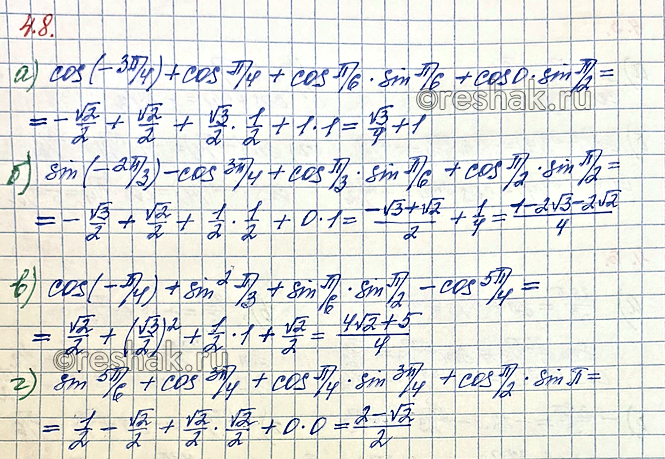 4.8.
а) cos(-3π/4) + cos π/4 + cos π/6 · sin π/6 + cos 0 · sin π/2 =
= -√2/2 + √2/2 + √3/2 · 1/2 + 1 · 1 = √3/4 + 1
б) sin(-2π/3) - cos 3π/4 + cos π/3 · sin π/6 + cos π/2 · sin π/2 =
= -√3/2 + √2/2 + 1/2 · 1/2 + 0 · 1 = (-√3 + √2)/2 + 1/4 = (1 - 2√3 - 2√2)/4
в) cos(-π/4) + sin² π/3 + sin π/6 · sin π/2 - cos 5π/4 =
= √2/2 + (√3/2)² + 1/2 · 1 + √2/2 = (4√2 + 5)/4
г) sin 5π/6 + cos 3π/4 + cos π/4 · sin 3π/4 + cos π/2 · sin π =
= 1/2 - √2/2 + √2/2 · √2/2 + 0 · 0 = (2 - √2)/2
©reshak.ru